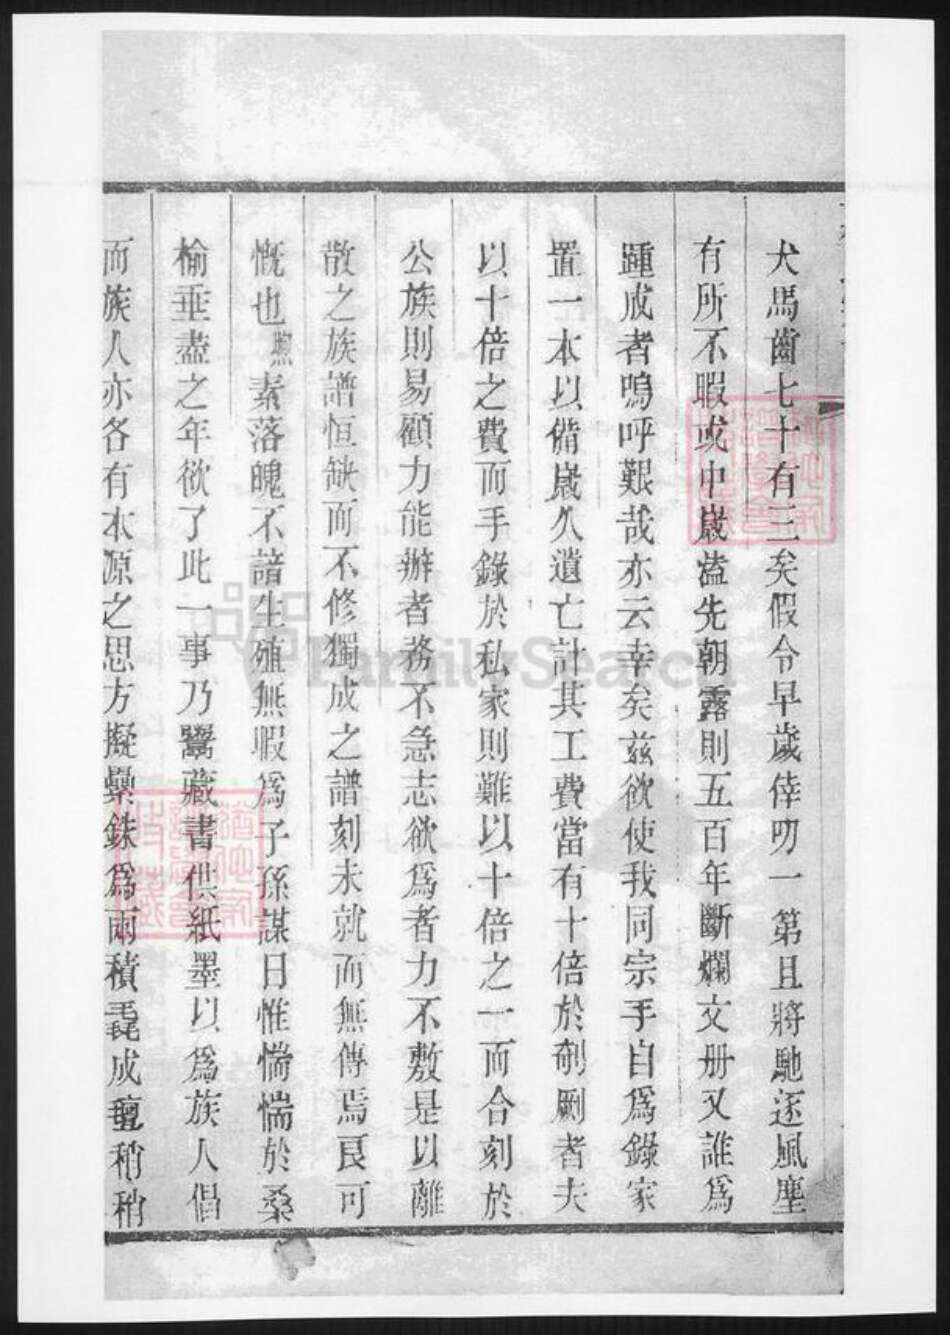 犬馬齒七十有三矣假令早歲倖叨一第且將馳逐風塵
有所不暇或中嵗溘先朝露則五百年斷爛文册又誰爲
踵成者嗚呼艱哉亦云幸矣兹欲使我同宗手自爲錄家
置一本以備嵗久遺亡計其工費當有十倍於剞劂者夫
以十倍之費而手錄於私家則難以十倍之一而合刻於
公族則易顧力能辦者務不急志欲爲者力不敷是以離
散之族譜恒缺而不修獨成之譜刻未就而無傳焉良可
慨也 素落魄不諳生殖無暇爲子孫謀日惟惴惴於桑
榆垂盡之年欲了此一事乃鬻藏書供紙墨以爲族人倡
而族人亦各有本源之思方擬纍銖爲兩積毳成氊稍稍
FamilySearch